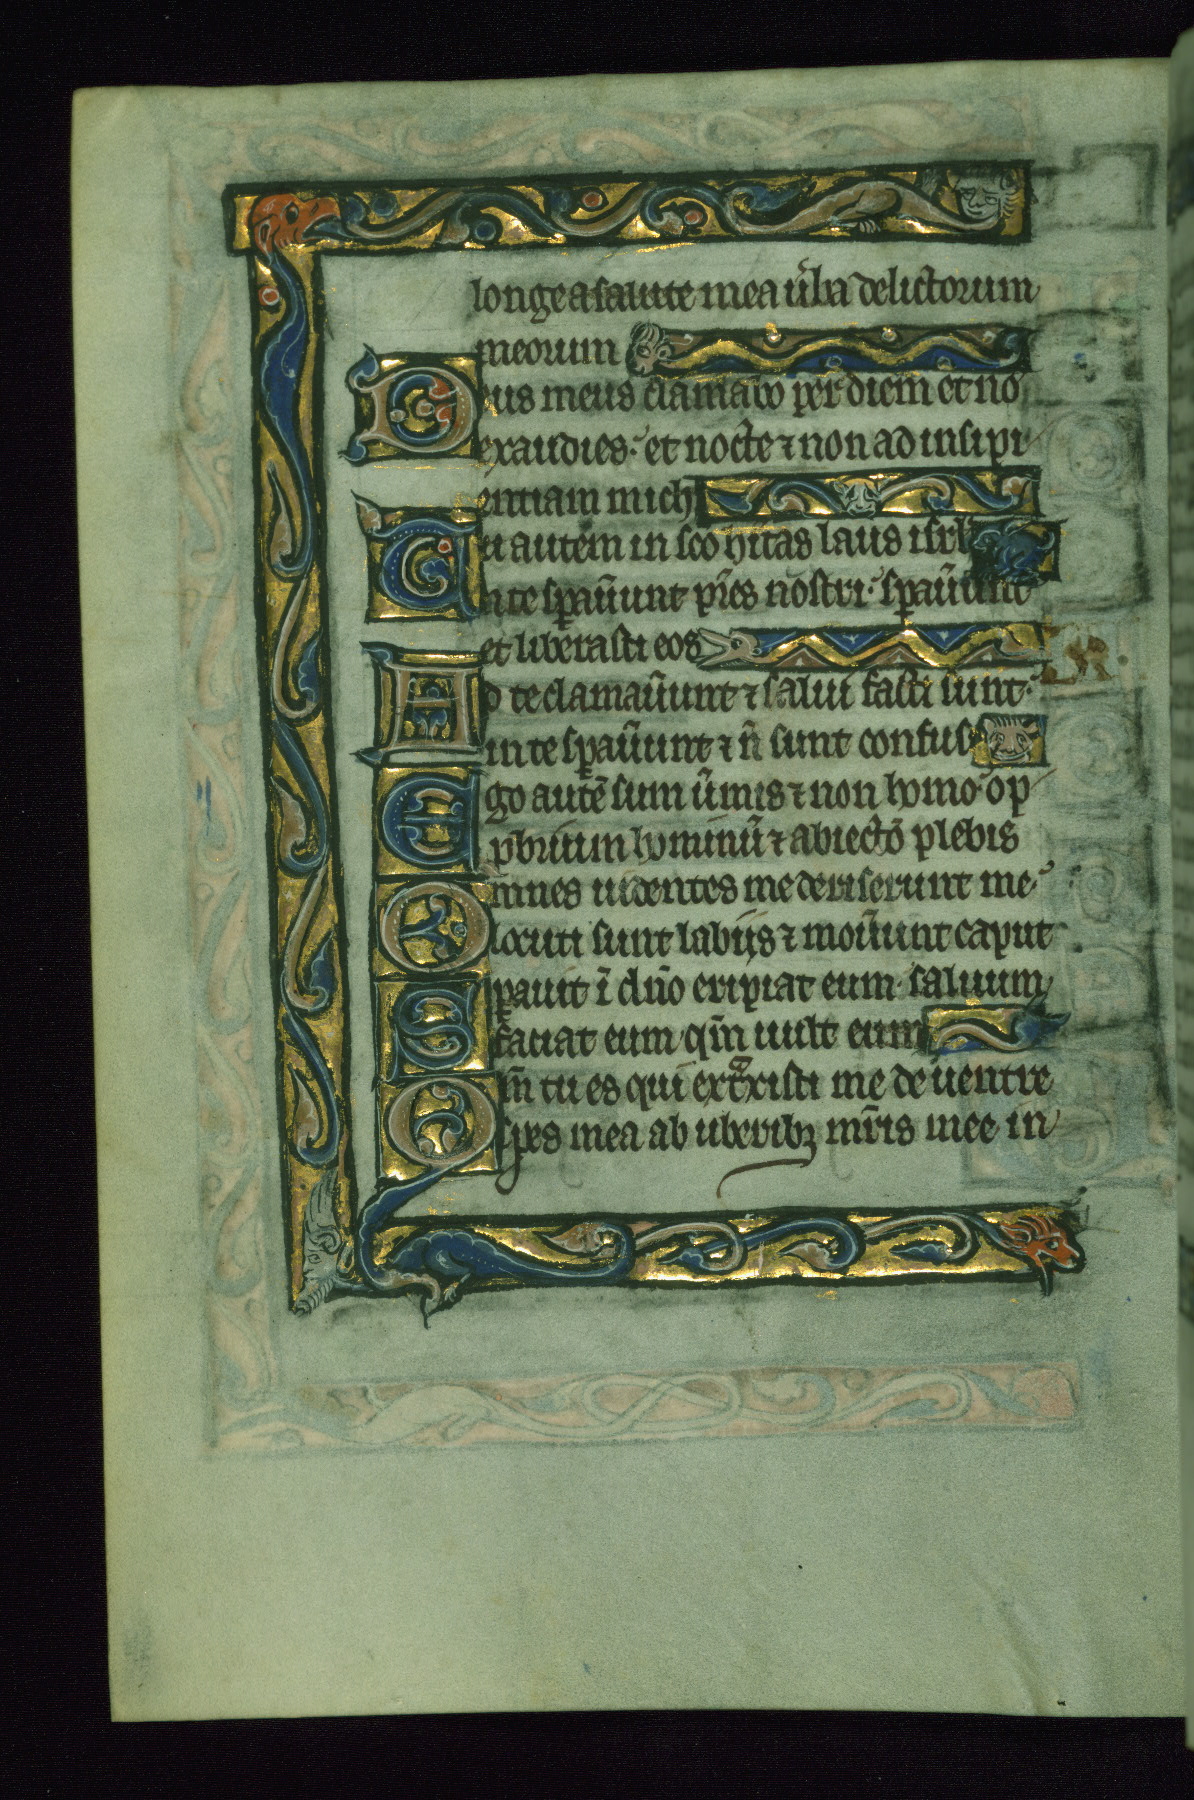 longe a salute mea ũba delictorum
meorum
Deus meus clamabo per diem et nõ
exaudies· et nocte ⁊ non ad insipi
entiam michi
Tu autem in sc̃o h̃itas laus isrl̃
In te sp̃auũunt pr̃es nostri· sp̃auũunt
et liberasti eos
Ad te clamaũunt ⁊ salui facti sunt·
in te sp̃auũunt ⁊ ñ sunt confusi
Ego autẽ sum ũmis ⁊ non homo· op
probrium hominũ ⁊ abiectõ plebis
Omnes uidentes me deriserunt me·
locuti sunt labijs ⁊ moũunt caput
Sperauit ĩ dño eripiat eum· saluum
faciat eum qm̃ uult eum
Qm̃ tu es qui extxisti me de uentre
spes mea ab uberibꝫ mr̃is mee in